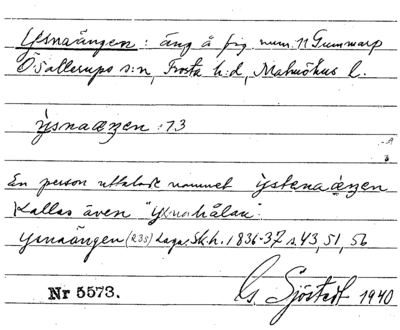 Ysnaängen: äng å fig num 11 Gummarp
Ö. Sallerups s:n, Frosta h:d, Malmöhus l.
ỳsnaæŋen :13
En person uttalade namnet ỳstenaæŋen
Kallas även "Ysnahålan".
Ysnaängen (235) Laga. Sk.h. 1836-37 s. 43, 51, 56
Nr 5573.
G. Sjöstedt 1940